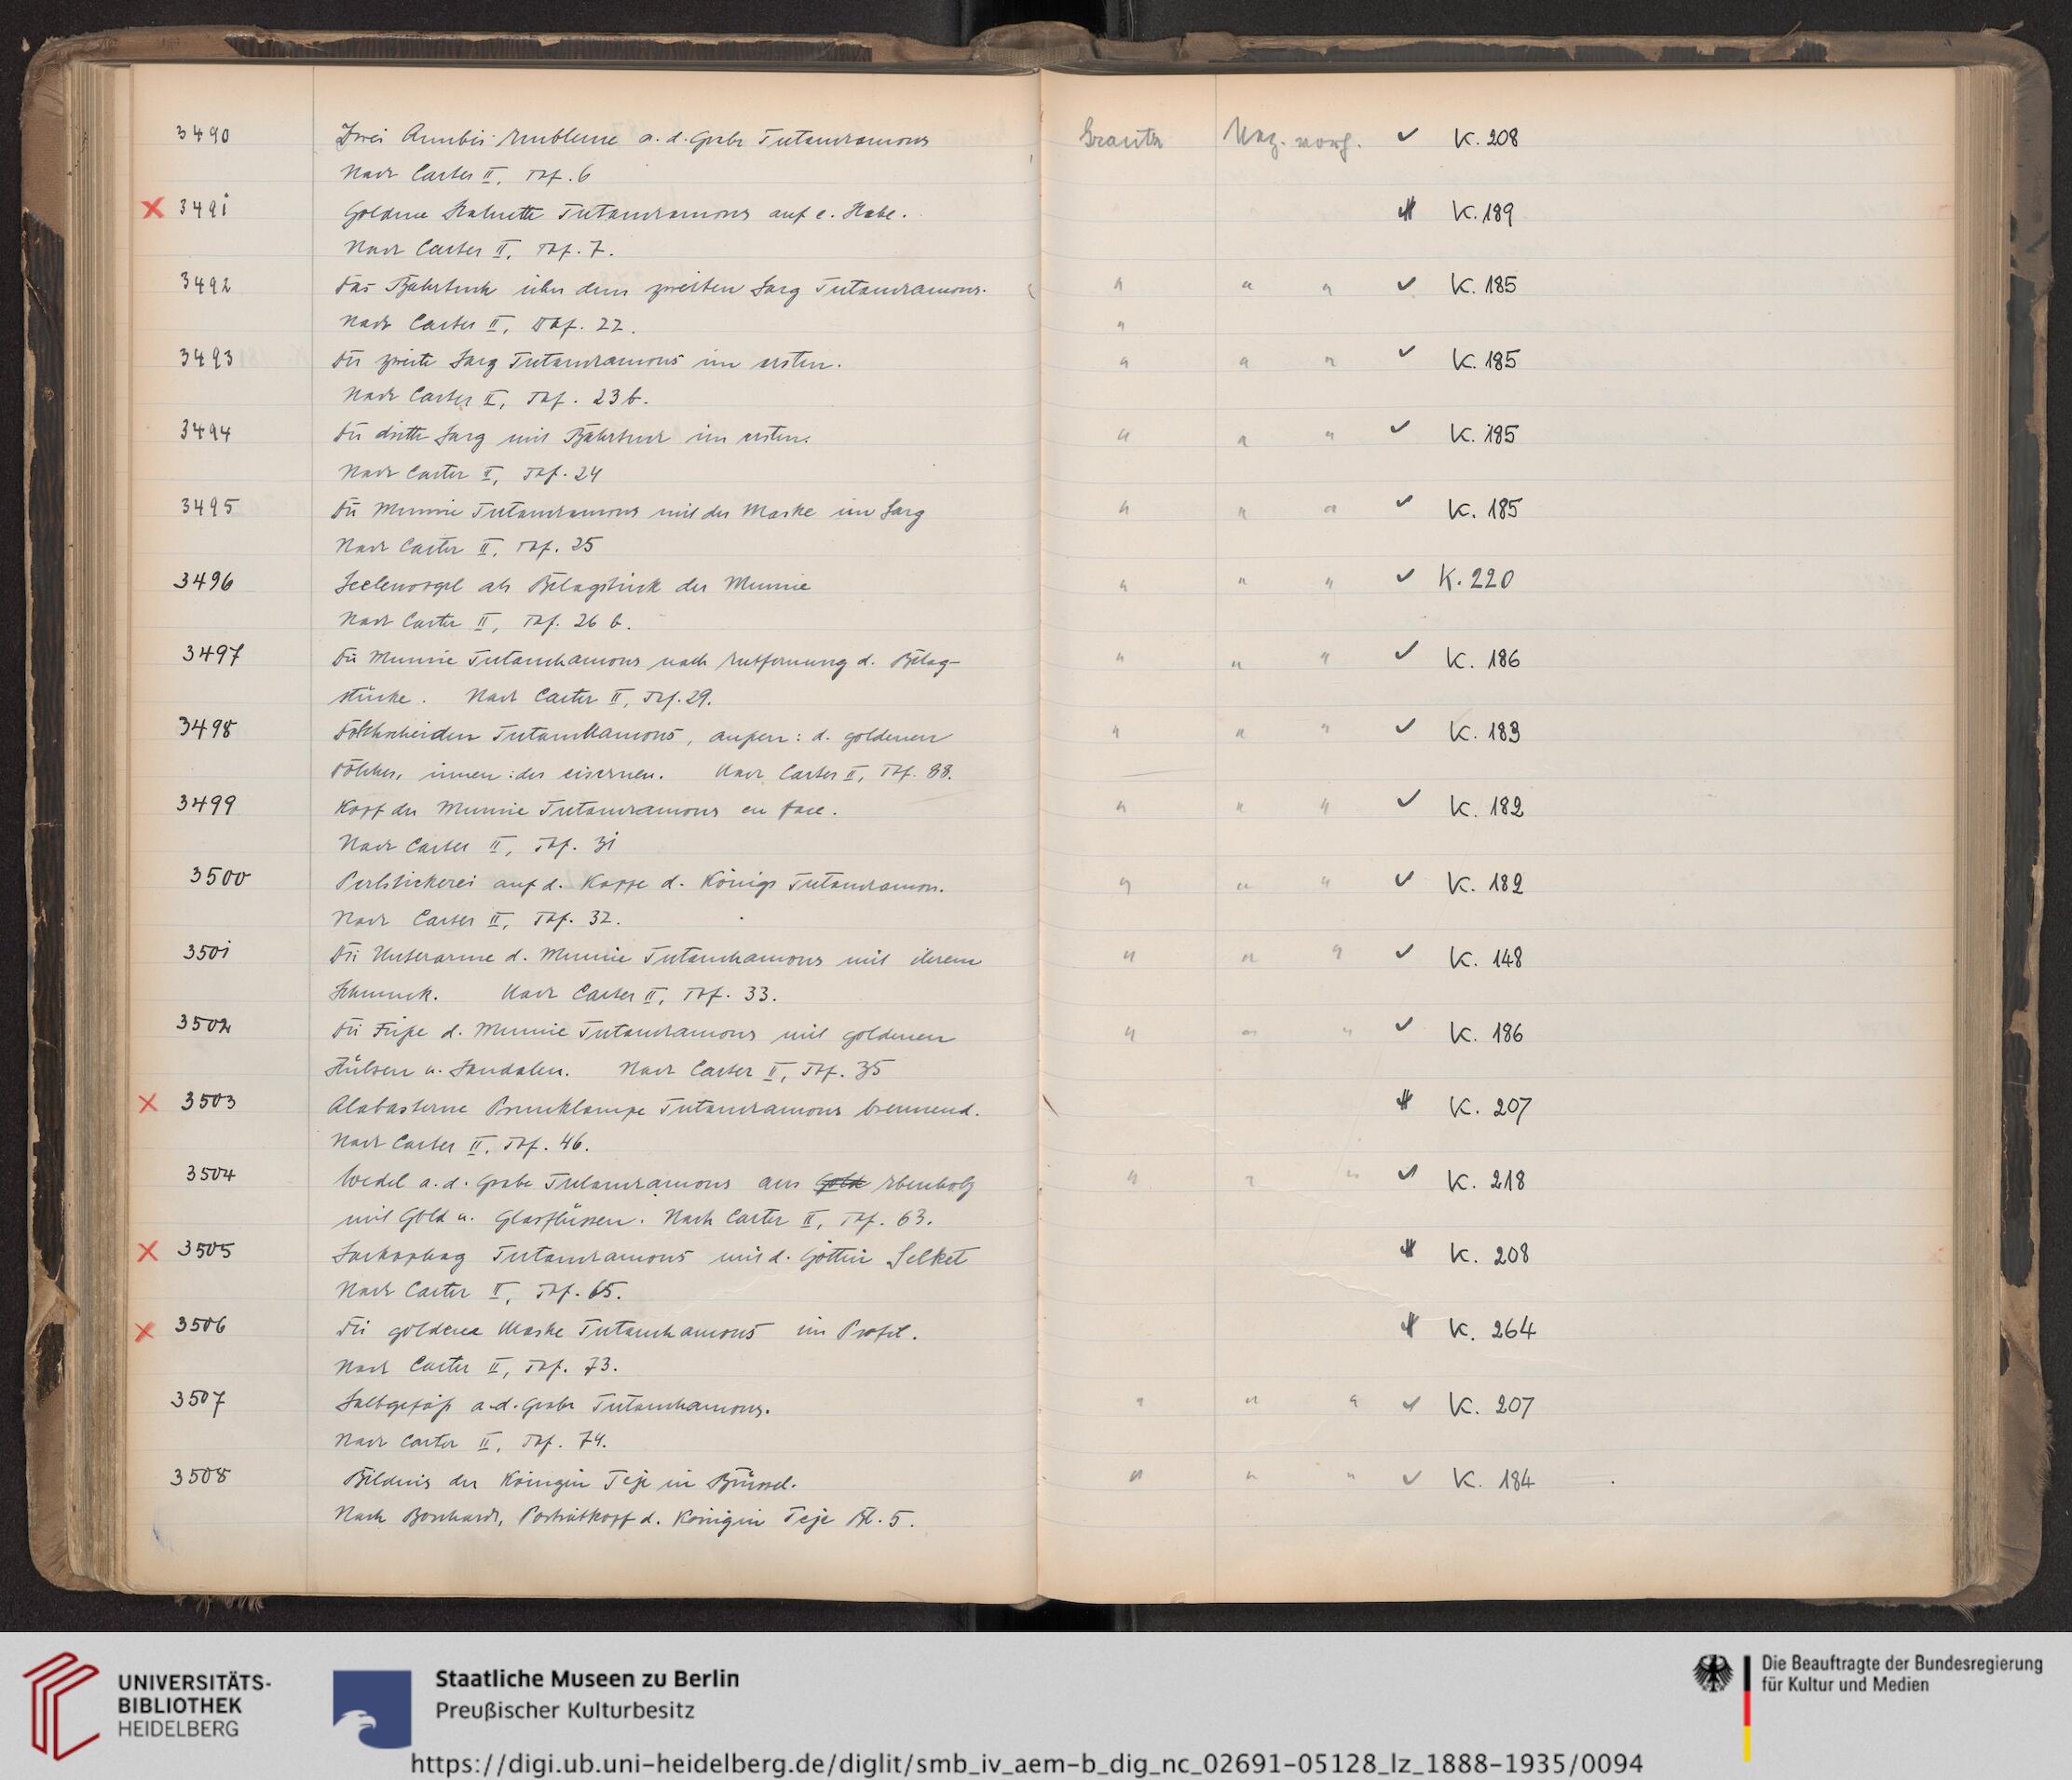 3490 Zwei Anubis-Embleme a. d. Grabe Tutanchamons Grantz Neg. vorh. ✓ K. 208
Nach Carter II, Taf. 6
× 3491 Goldene Statuette Tutanchamons auf e. Stabe. K. 189
Nach Carter II, Taf. 7.
3492 Das Bahrtuch über dem zweiten Sarg Tutanchamons. " " " ✓ K. 185
Nach Carter II, Taf. 22. "
3493 Der zweite Sarg Tutanchamons im ersten. " " " ✓ K. 185
Nach Carter II, Taf. 23 b.
3494 Der dritte Sarg mit Bahrtuch im ersten. " " " ✓ K. 185
Nach Carter II, Taf. 24
3495 Die Mumie Tutanchamons mit der Maske im Sarg " " " ✓ K. 185
Nach Carter II, Taf. 25
3496 Seelenvogel als Belagstück der Mumie " " " ✓ K. 220
Nach Carter II, Taf. 26 b.
3497 Die Mumie Tutanchamons nach Entfernung d. Belag- " " " ✓ K. 186
stücke. Nach Carter II, Taf. 29.
3498 Dolchscheiden Tutanchamons, außen: d. goldenen " " " ✓ K. 183
Dolches, innen: des eisernen. Nach Carter II, Taf. 88.
3499 Kopf der Mumie Tutanchamons en face. " " " ✓ K. 182
Nach Carter II, Taf. 31
3500 Perlstickerei auf d. Kappe d. Königs Tutanchamon. " " " ✓ K. 182
Nach Carter II, Taf. 32.
3501 Die Unterarme d. Mumie Tutanchamons mit ihrem " " " ✓ K. 148
Schmuck. Nach Carter II, Taf. 33.
3502 Die Füße d. Mumie Tutanchamons mit goldenen " " " ✓ K. 186
Hülsen u. Sandalen. Nach Carter II, Taf. 35
× 3503 Alabasterne Prunklampe Tutanchamons brennend. K. 207
Nach Carter II, Taf. 46.
3504 Wedel a. d. Grabe Tutanchamons aus Gold Ebenholz " " " ✓ K. 218
mit Gold u. Glasflüssen. Nach Carter II, Taf. 63.
× 3505 Sarkophag Tutanchamons mit d. Göttin Selket K. 208
Nach Carter II, Taf. 65.
× 3506 Die goldene Maske Tutanchamons im Profil. K. 264
Nach Carter II, Taf. 73.
3507 Salbgefäß a. d. Grabe Tutanchamons. " " " ✓ K. 207
Nach Carter II, Taf. 74.
3508 Bildnis der Königin Teje in Brüssel. " " " ✓ K. 184
Nach Borchardt, Porträtkopf d. Königin Teje Bl. 5.
UNIVERSITÄTS-
BIBLIOTHEK
HEIDELBERG
Staatliche Museen zu Berlin
Preußischer Kulturbesitz
Die Beauftragte der Bundesregierung
für Kultur und Medien
https://digi.ub.uni-heidelberg.de/diglit/smb_iv_aem-b_dig_nc_02691-05128_lz_1888-1935/0094